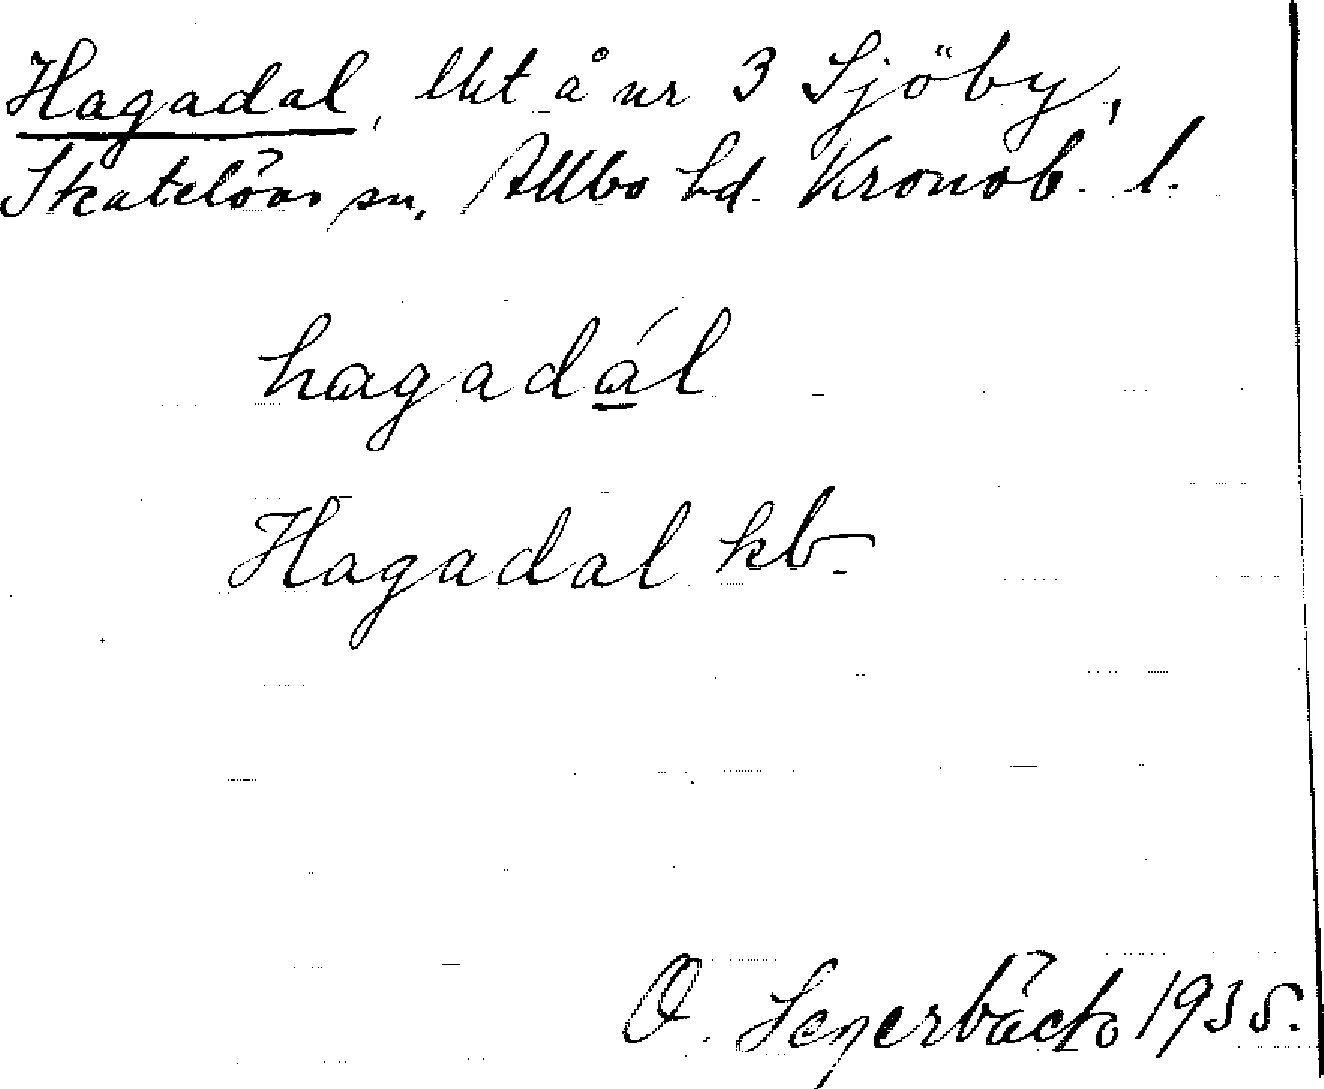 Hagadal, lht å nr 3 Sjöby,
Skatelövs sn, Allbo hd. Kronob. l.
hagadál
Hagadal kb.
O. Segerbäck 1935.